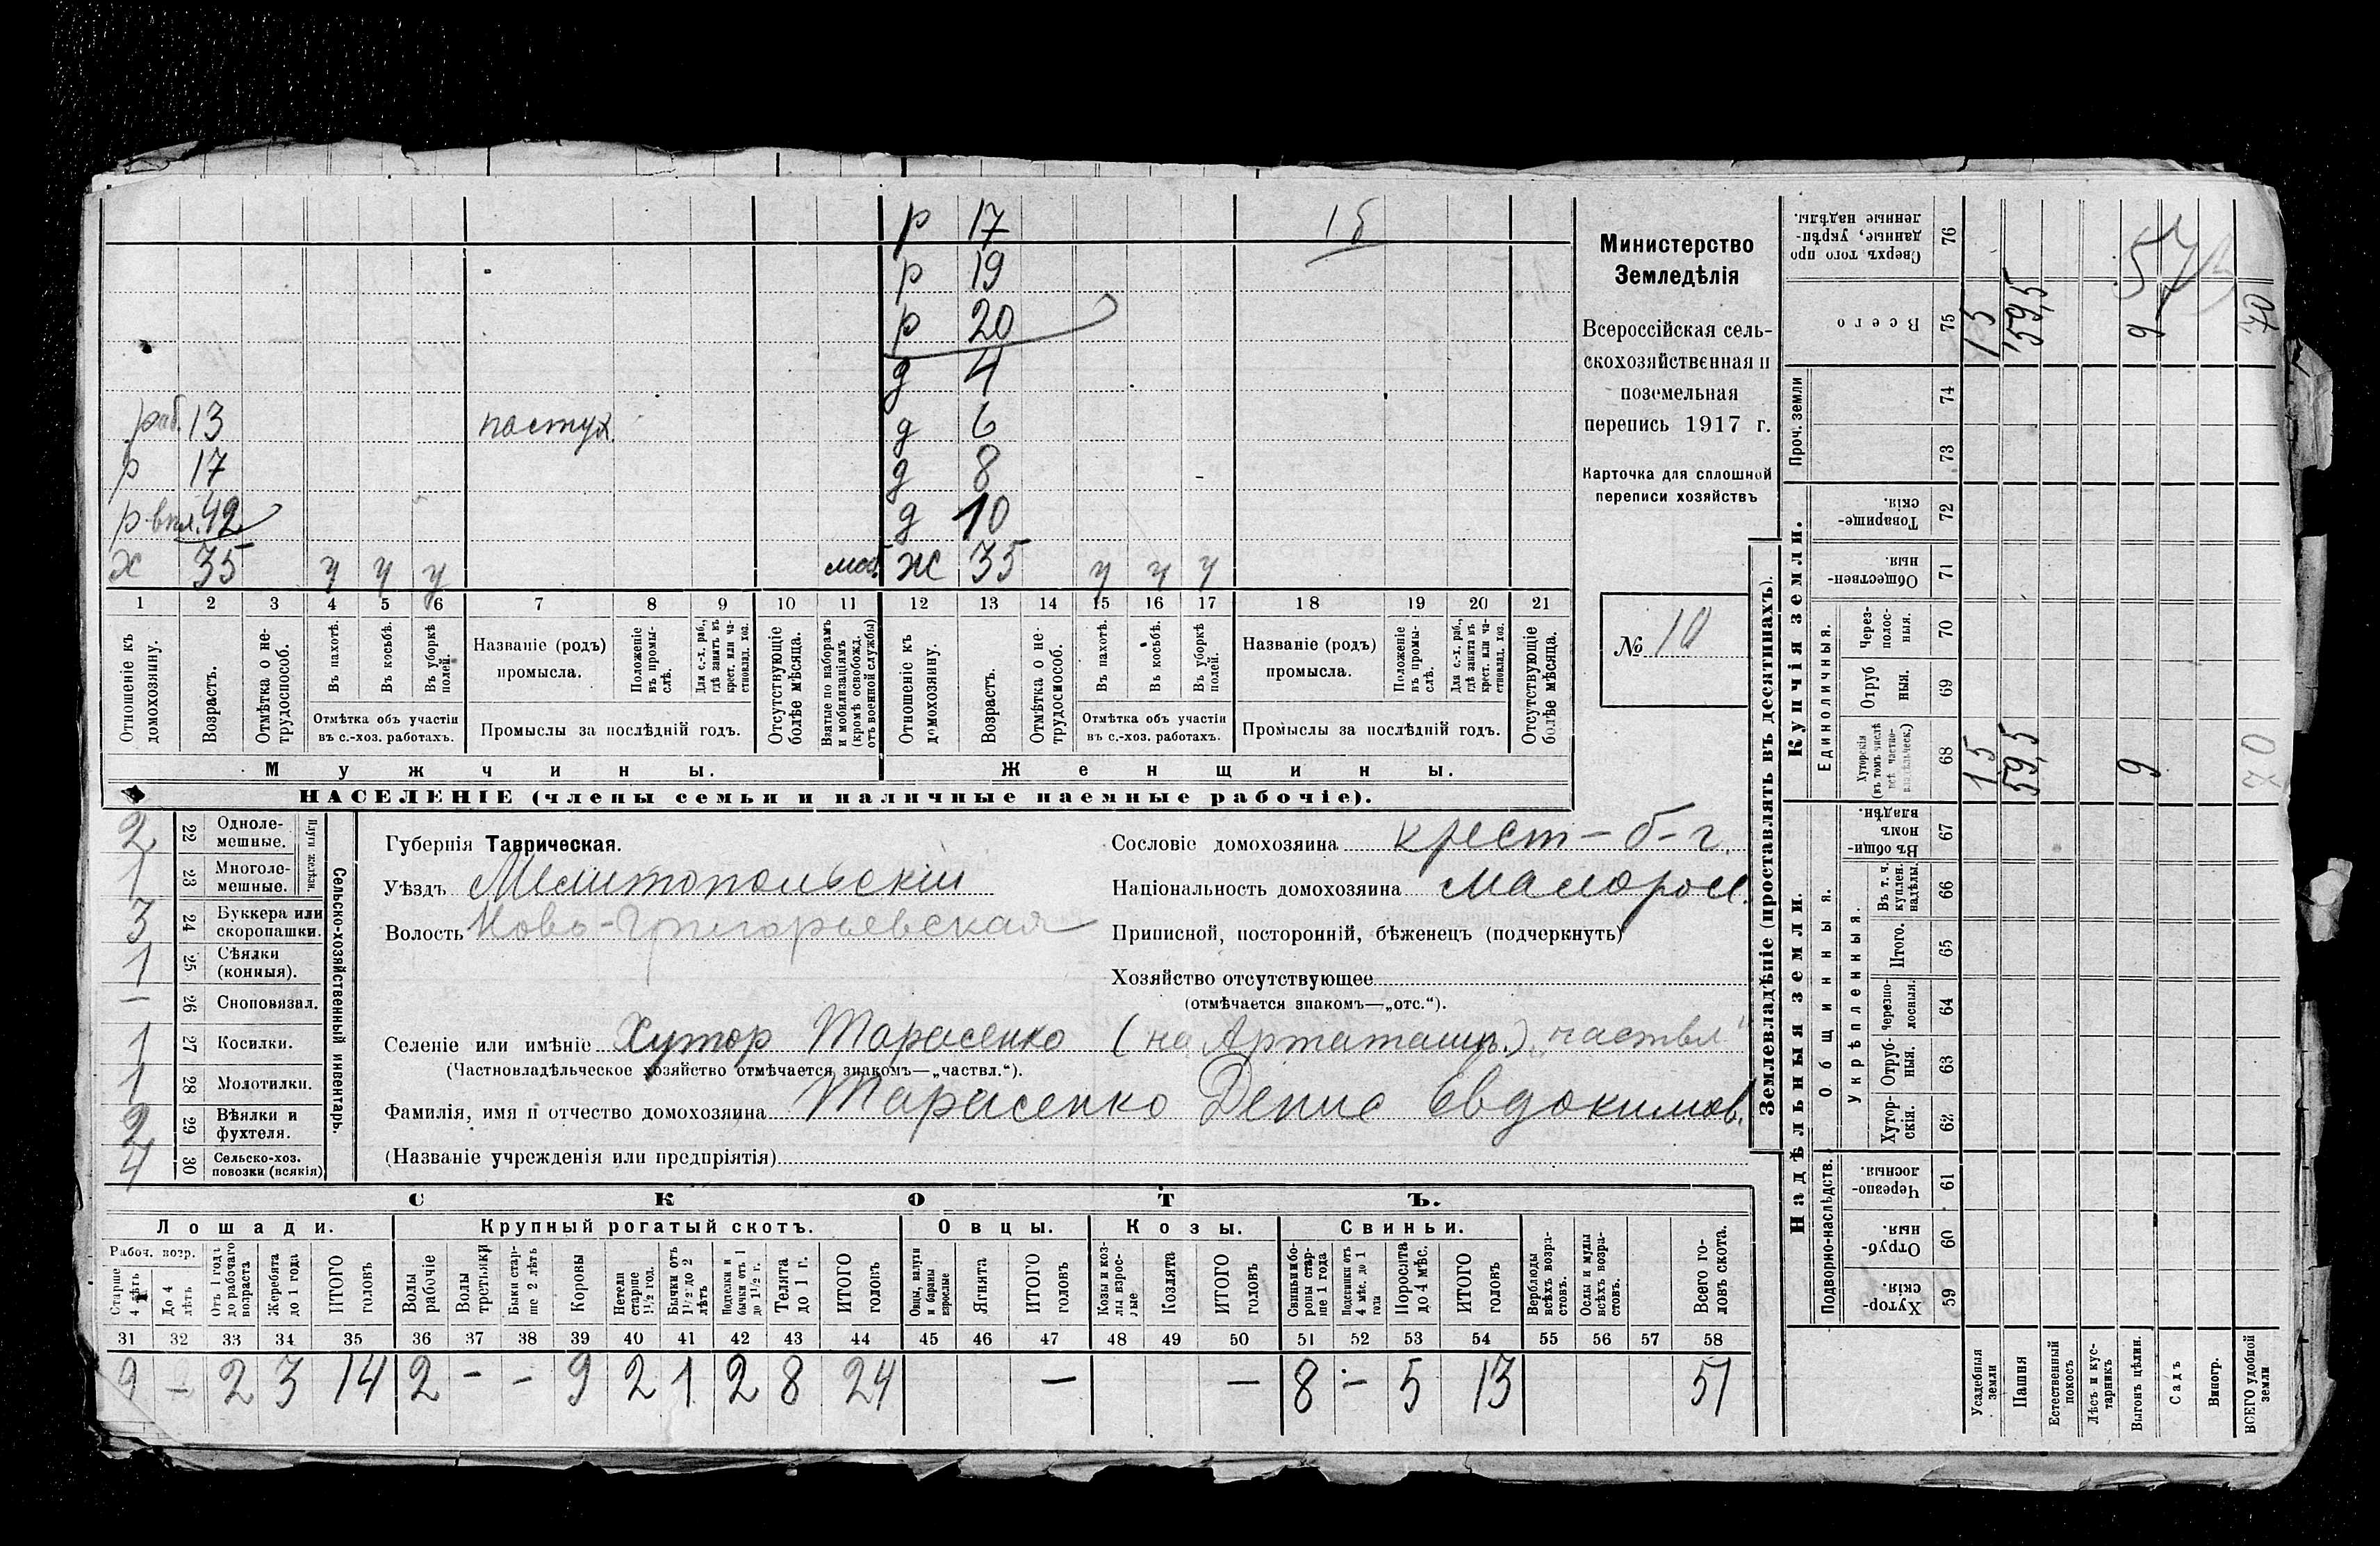 р 17 15
р 19
р 20
д 4
раб. 13 пастух. д 6
р 17 д 8
р-впл. 42 д 10
х 35 у у у моб. ж 35 у у у
1 2 3 4 5 6 7 8 9 10 11 12 13 14 15 16 17 18 19 20 21
Отношеніе къ домохозяину.
Возрастъ.
Отмѣтка о нетрудоспособ.
Въ пахотѣ.
Въ косьбѣ.
Въ уборкѣ полей.
Отмѣтка объ участіи въ с.-хоз. работахъ.
Названіе (родъ) промысла.
Положеніе въ промыслѣ.
Для с.-х. раб., гдѣ занятъ въ крест. или частновлад. хоз.
Промыслы за послѣдній годъ.
Отсутствующіе болѣе мѣсяца.
Взятые по наборамъ и мобилизаціямъ (кромѣ освобожд. отъ военной службы)
Отношеніе къ домохозяину.
Возрастъ.
Отмѣтка о нетрудоспособ.
Въ пахотѣ.
Въ косьбѣ.
Въ уборкѣ полей.
Отмѣтка объ участіи въ с.-хоз. работахъ.
Названіе (родъ) промысла.
Положеніе въ промыслѣ.
Для с.-х. раб., гдѣ занята въ крест. или частновлад. хоз.
Промыслы за послѣдній годъ.
Отсутствующіе болѣе мѣсяца.
Мужчины. Женщины.
НАСЕЛЕНІЕ (члены семьи и наличные наемные рабочіе).
Министерство
Земледѣлія
Всероссійская сель-
скохозяйственная и
поземельная
перепись 1917 г.
Карточка для сплошной
переписи хозяйствъ
№ 10
2 22 Одноле-мешные.
1 23 Многоле-мешные.
Плуги желѣзн.
3 24 Буккера или скоропашки.
1 25 Сѣялки (конныя).
— 26 Сноповязал.
1 27 Косилки.
1 28 Молотилки.
2 29 Вѣялки и фухтеля.
4 30 Сельско-хоз. повозки (всякія)
Сельско-хозяйственный инвентарь.
Губернія Таврическая.
Уѣздъ Мелитопольскій
Волость Ново-Григорьевская
Сословіе домохозяина крест-б-г.
Національность домохозяина малорос.
Приписной, посторонній, бѣженецъ (подчеркнуть)
Хозяйство отсутствующее
(отмѣчается знакомъ—„отс.“).
Селеніе или имѣніе Хутор Тарасенко (на Артаташ.) „частвл“
(Частновладѣльческое хозяйство отмѣчается знакомъ—„частвл.“).
Фамилія, имя и отчество домохозяина Тарасенко Денис Евдокимов.
(Названіе учрежденія или предпріятія)
СКОТЪ.
Лошади. Крупный рогатый скотъ. Овцы. Козы. Свиньи.
Рабоч. возр.
Старше 4 лѣтъ
До 4 лѣтъ
Отъ 1 годъ до рабочаго возраста
Жеребята до 1 года
ИТОГО головъ
Волы рабочіе
Волы третьяки
Быки старше 2 лѣтъ
Коровы
Нетели старше 1½ год.
Бычки отъ 1½ до 2 лѣтъ
Подтелки и бычки отъ 1 до 1½ г.
Телята до 1 г.
ИТОГО головъ
Овцы, валухи и бараны взрослые
Ягнята
ИТОГО головъ
Козы и козлы взрослые
Козлята
ИТОГО головъ
Свиньи и боровы старше 1 года
Подсвинки отъ 4 мѣс. до 1 года
Поросята до 4 мѣс.
ИТОГО головъ
Верблюды всѣхъ возрастовъ.
Ослы и мулы всѣхъ возрастовъ.
Всего головъ скота.
31 32 33 34 35 36 37 38 39 40 41 42 43 44 45 46 47 48 49 50 51 52 53 54 55 56 57 58
9 – 2 3 14 2 - - 9 2 1 2 8 24 — — 8 - 5 13 51
Землевладѣніе (проставлять въ десятинахъ).
Надѣльныя земли. Купчія земли. Проч. земли
Подворно-наслѣдств. Общинныя. Укрѣпленныя. Единоличныя.
Сверхъ того проданные, укрѣпленные надѣлы. 76
Всего 75 15 59,5 9 70
57
74
73
Товарищескія. 72
Общественныя. 71
Черезполосныя. 70
Отрубныя. 69
Хуторскія (въ томъ числѣ всѣ частновладѣльческ.) 68 15 59,5 9 70
Въ общинномъ владѣн. 67
Въ т. ч. куплен. надѣлы. 66
Итого. 65
Черезполосныя. 64
Отрубныя. 63
Хуторскія. 62
Черезполосныя 61
Отрубныя. 60
Хуторскія. 59
Усадебныя земли
Пашня
Естественный покосъ
Лѣсъ и кустарникъ
Выгонъ цѣлин.
Садъ
Виногр.
ВСЕГО удобной земли